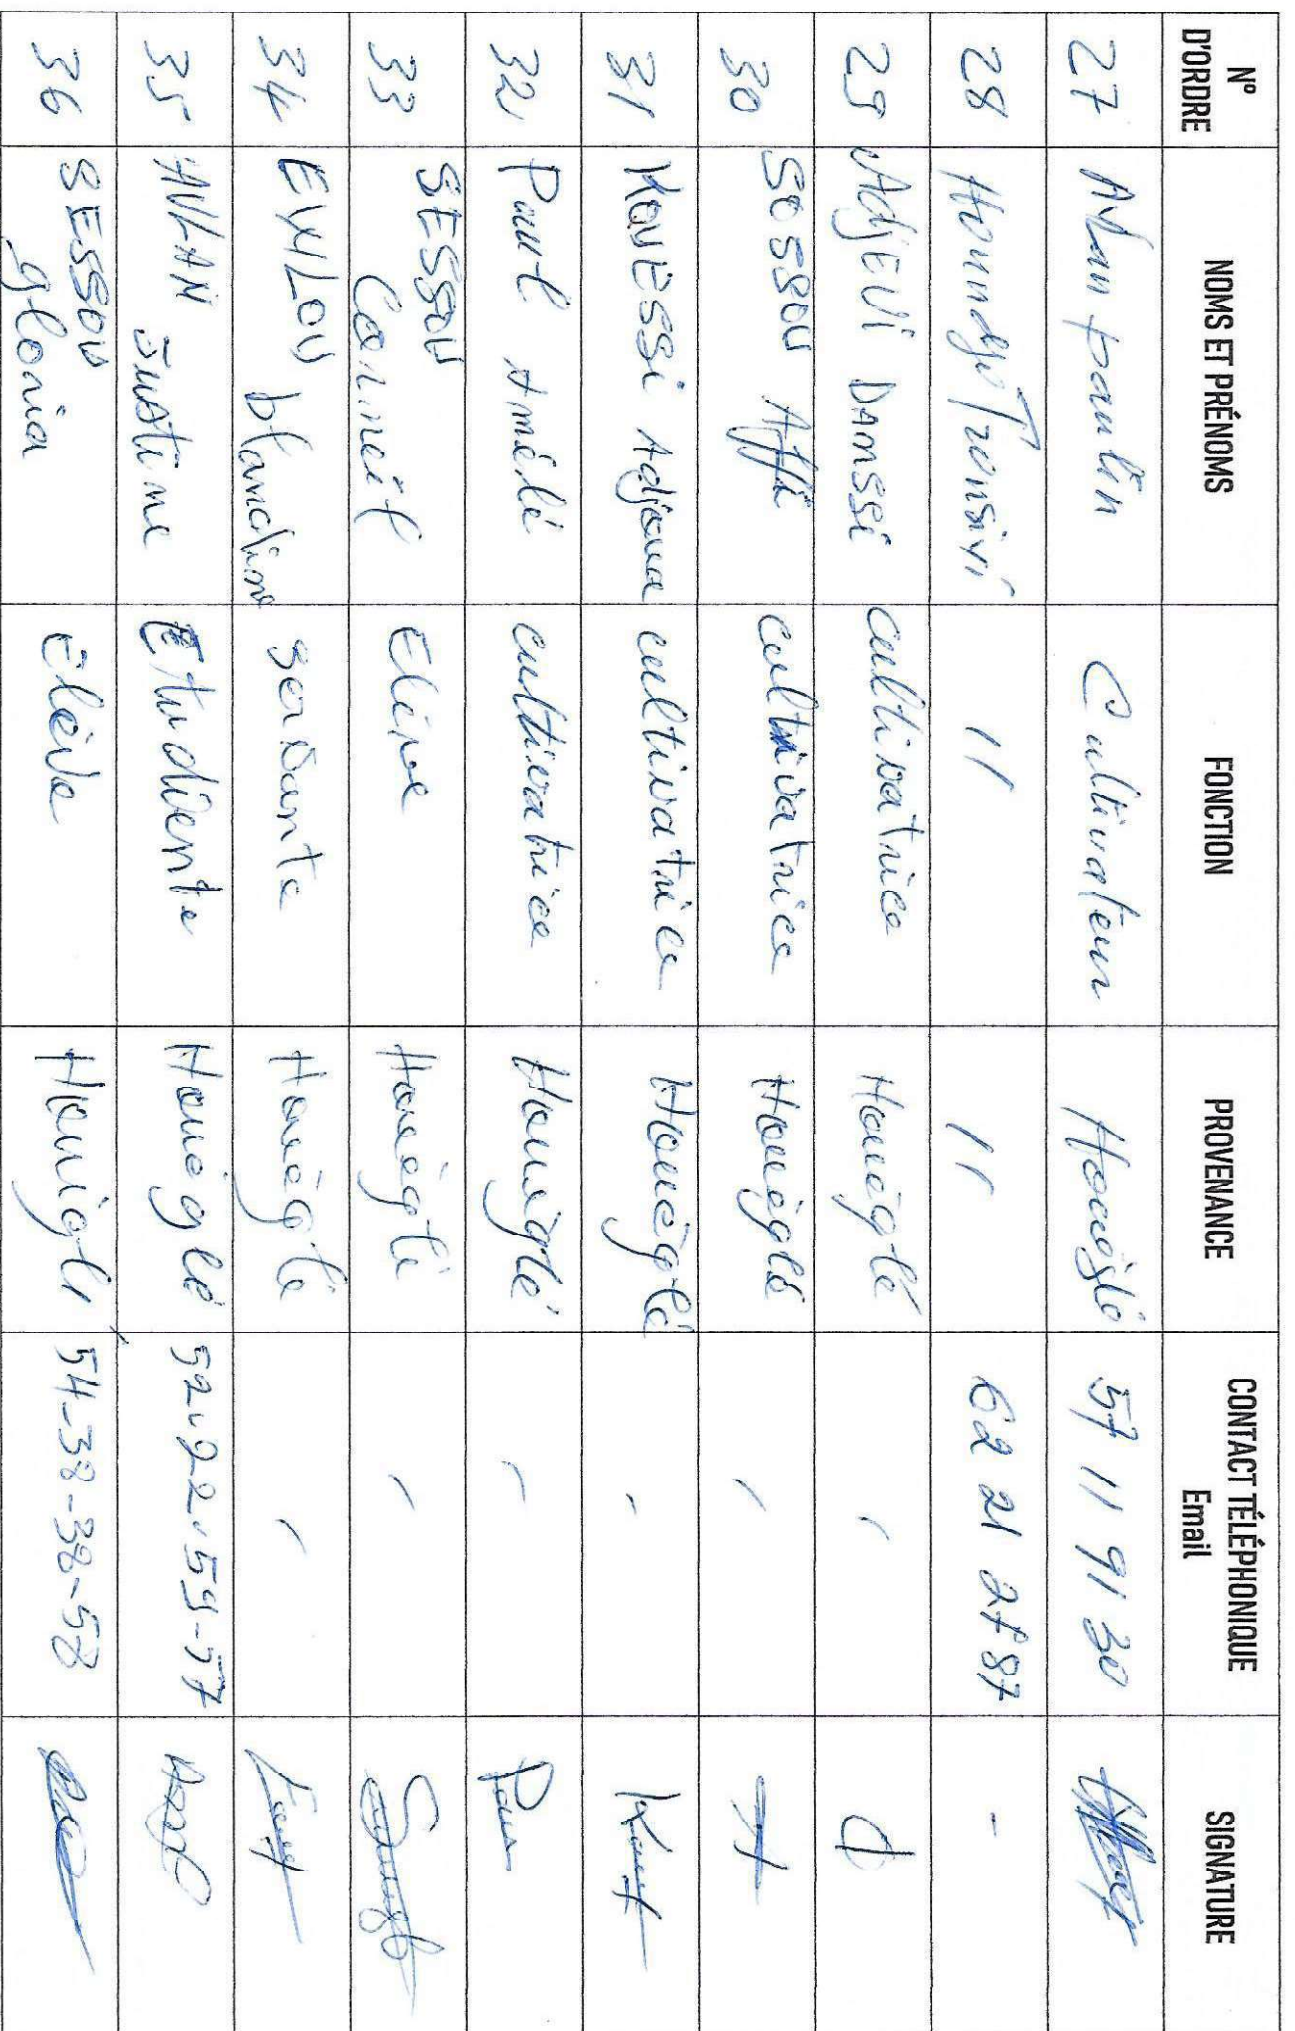 N° D'ORDRE NOMS ET PRÉNOMS FONCTION PROVENANCE CONTACT TÉLÉPHONIQUE Email SIGNATURE
27 Avlan paulin Cultivateur Houéglé 57 11 91 30
28 Houndjo Tronsivi 11 11 62 21 27 87 -
29 AdjEVi DAnssi cultivatrice Houéglé -
30 SOSSOU Affi cultrivatrice Houéglé -
31 KOUESSi Adjoua cultivatrice Houéglé -
32 Paul Amélé cultivatrice Houéglé - Pau
33 SESSOU Corneil Elève Houéglé -
34 EKLOU blandine servante Houéglé -
35 AVLAN Justine Etudiente Houéglé 52-22-59-57
36 SESSOU gloria Elève Houéglé 54-38-38-58